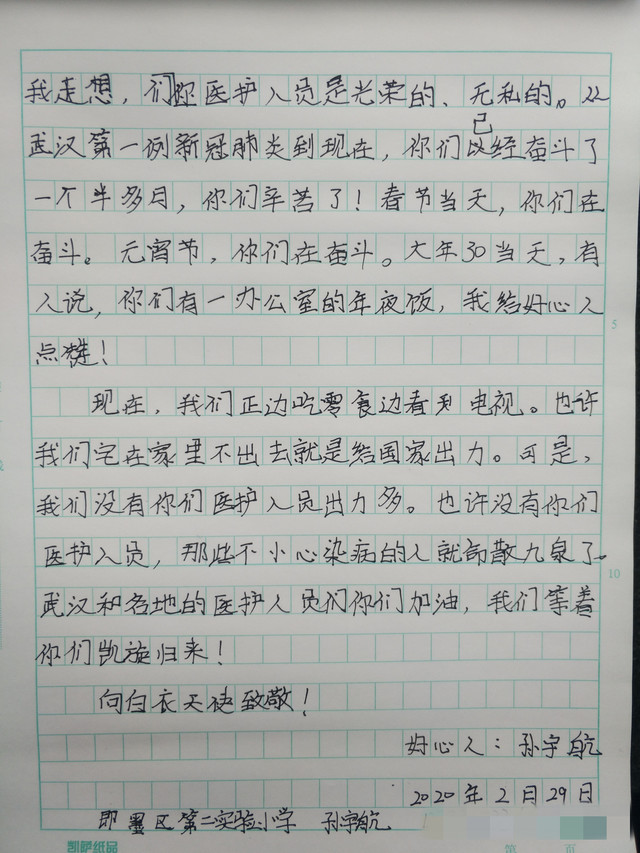 我走想，们你医护人员是光荣的、无私的。从
已
武汉第一例新冠肺炎到现在，你们以经奋斗了
一个半多月，你们辛苦了！春节当天，你们在
奋斗。元宵节，你们在奋斗。大年30当天，有
人说，你们有一办公室的年夜饭，我给好心人
点赞！
现在，我们正边吃零食边看到电视。也许
我们宅在家里不出去就是给国家出力。可是、
我们没有你们医护人员出力多。也许没有你们
医护人员，那些不小心染病的人就命散九泉了。
武汉和各地的医护人员们你们加油，我们等着
你们凯旋归来！
向白衣天使致敬！
好心人：孙宇航
2020年2月29日
即墨区第二实验小学 孙宇航
凯萨纸品 第 页
5
10